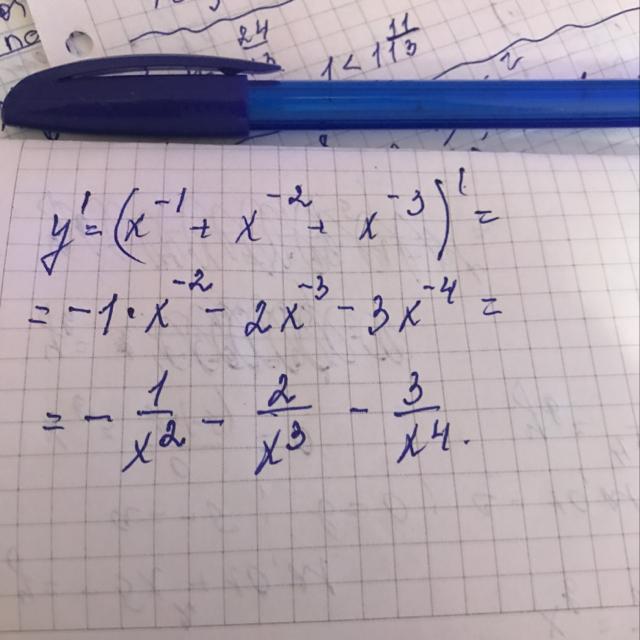 24
1 < 1 11/13
y' = (x⁻¹ + x⁻² + x⁻³)' =
= -1 · x⁻² - 2x⁻³ - 3x⁻⁴ =
= - 1/x² - 2/x³ - 3/x⁴.